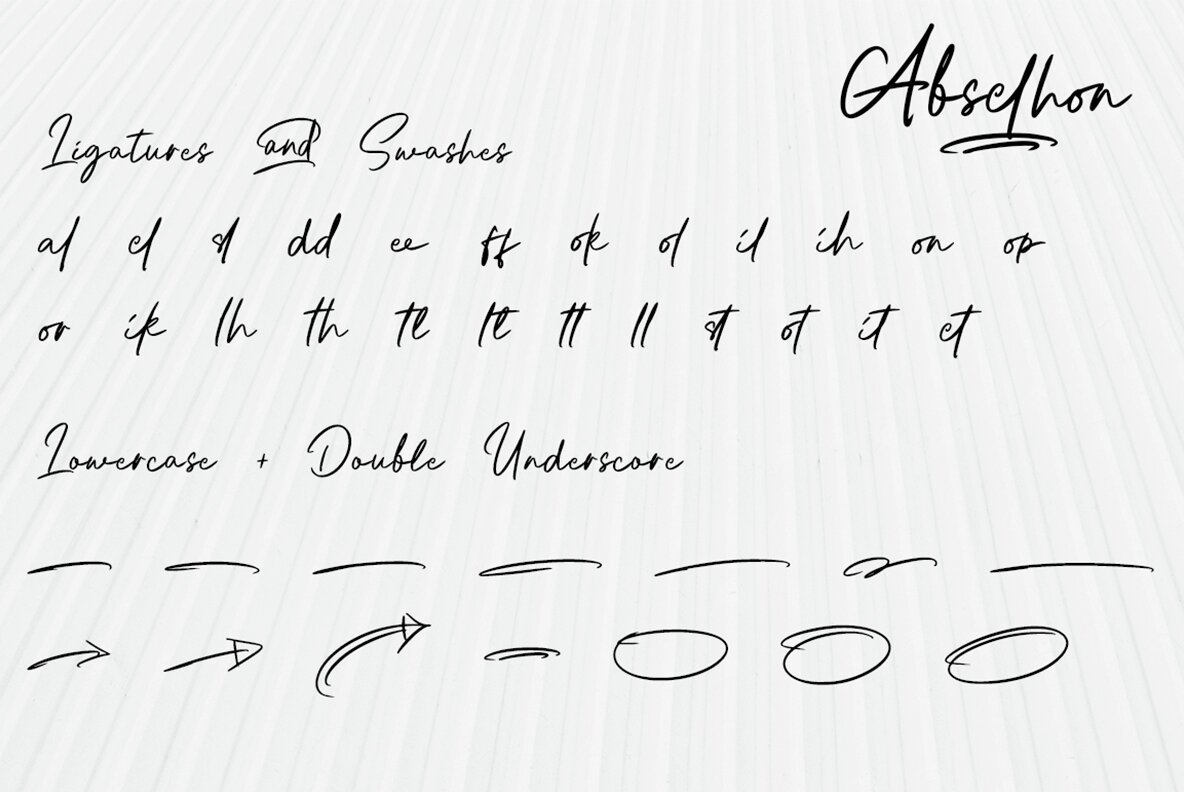 Abselhon
Ligatures and Swashes
al el sl dd ee ff ok ol il ih on op
or ik lh th tl ltl tt ll st ot it et
Lowercase + Double Underscore